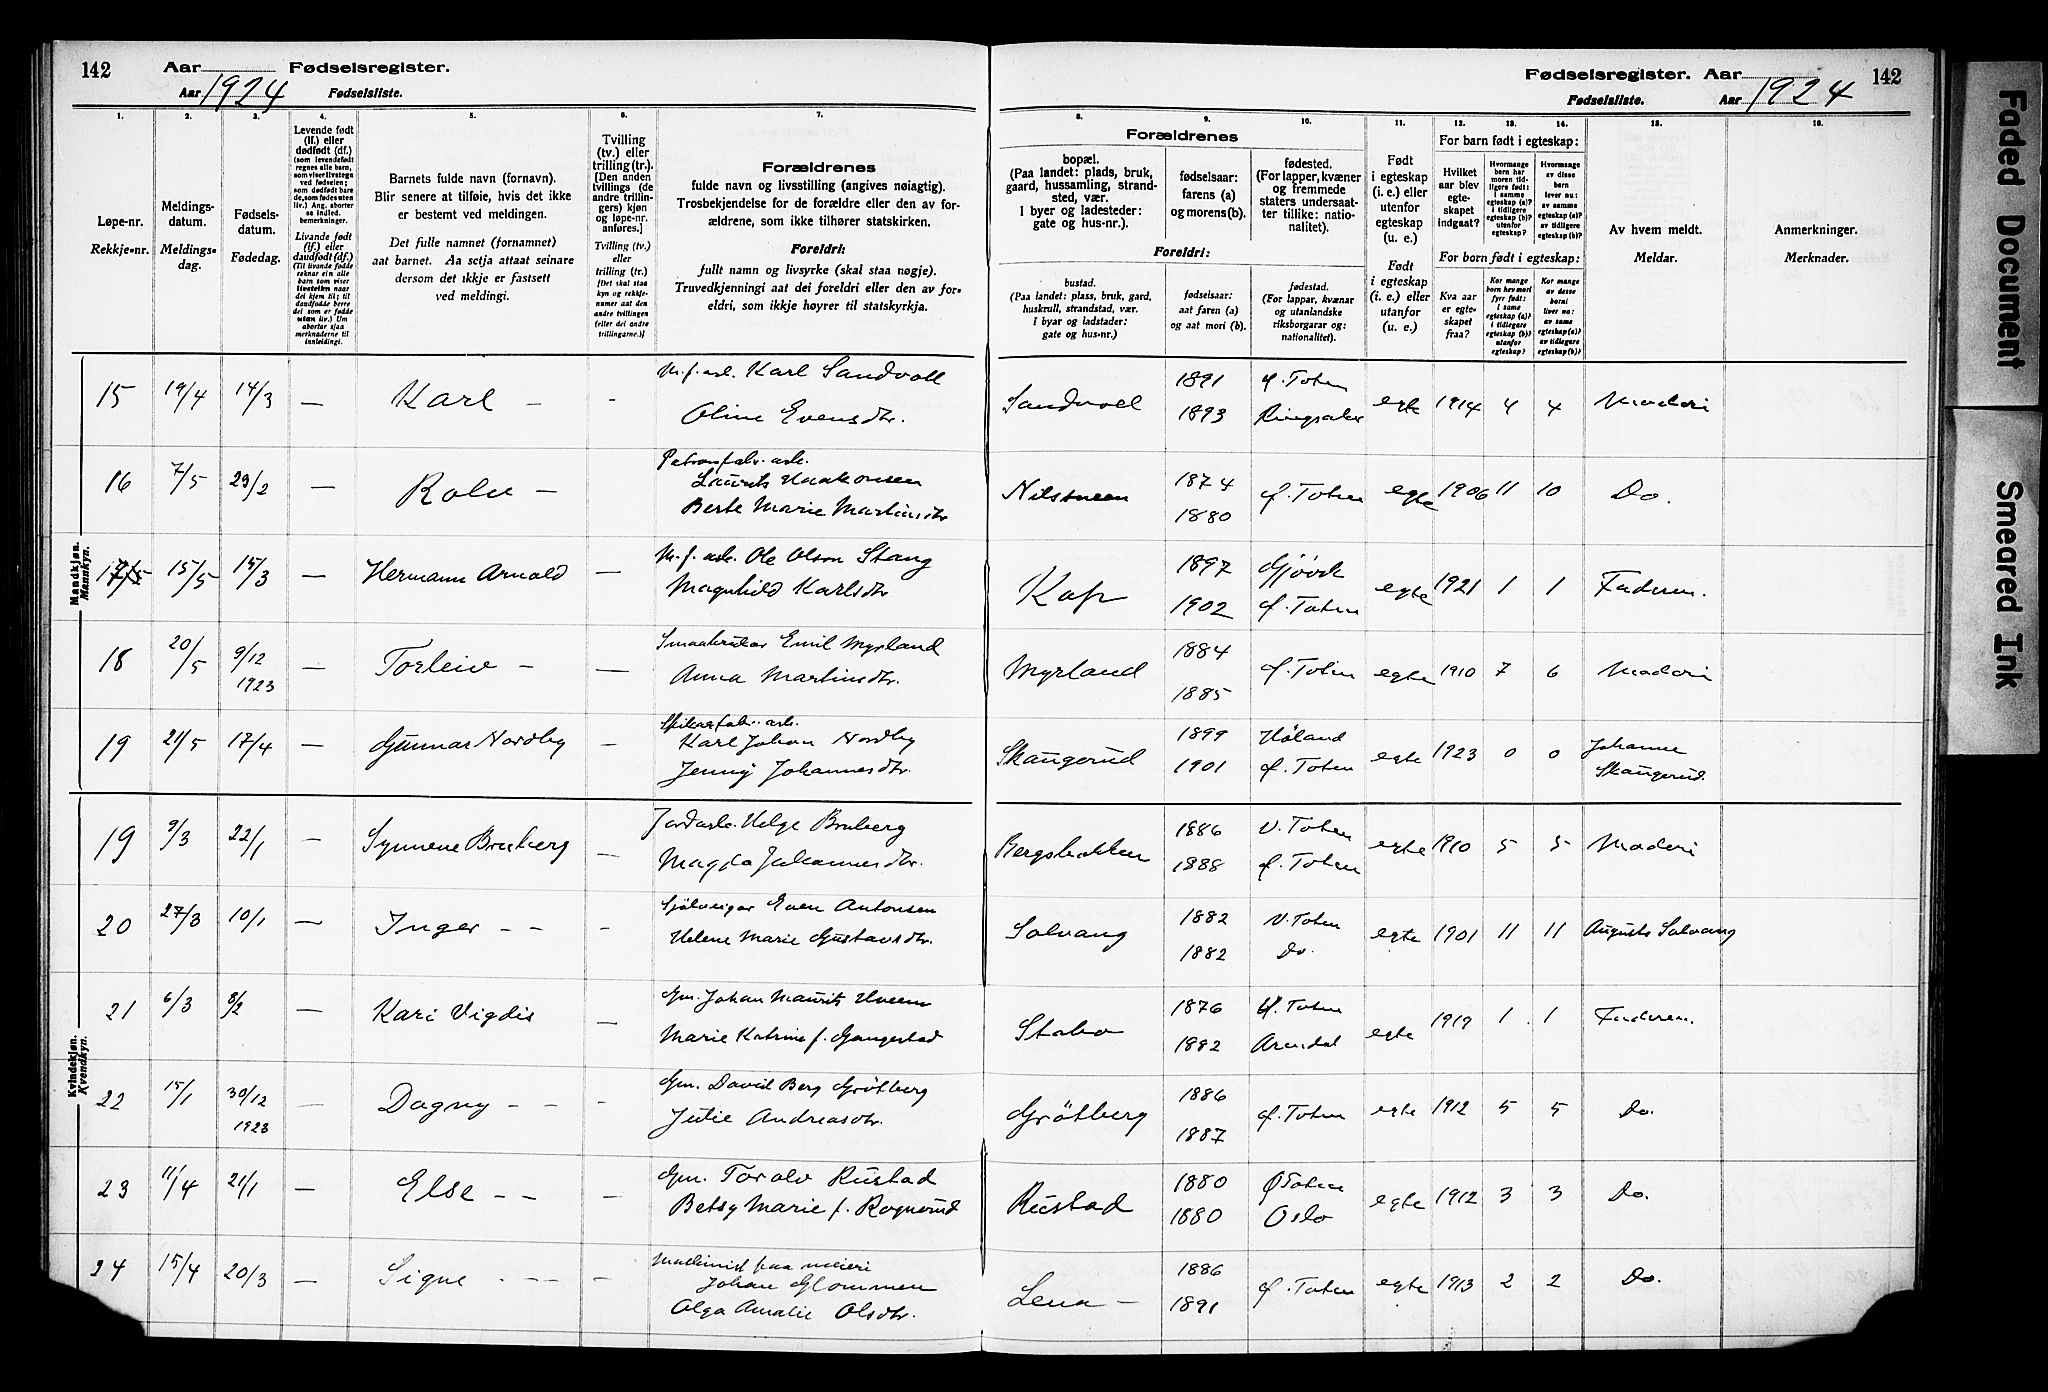 142 Aar Fødselsregister.
Aar 1924 Fødselsliste.
Fødselsregister. Aar 142
Fødselsliste. Aar 1924
1. 2. 3. 4. 5. 6. 7.
8. 9. 10. 11. 12. 13. 14. 15. 16.
Løpe-nr.
Rekkje-nr.
Meldings-
datum.
Meldings-
dag.
Fødsels-
datum.
Fødedag.
Levende født
(lf.) eller
dødfødt (df.)
Livande født
(lf.) eller
daudfødt (df.)
Barnets fulde navn (fornavn).
Blir senere at tilføie, hvis det ikke
er bestemt ved meldingen.
Det fulle namnet (fornamnet)
aat barnet. Aa setja attaat seinare
dersom det ikkje er fastsett
ved meldingi.
Tvilling
(tv.) eller
trilling (tr.).
(Den anden
tvillings (de
andre trillin-
gers) kjøn
og løpe-nr.
anføres.]
Tvilling (tv.)
eller
trilling (tr.)
Forældrenes
fulde navn og livsstilling (angives nøiagtig).
Trosbekjendelse for de forældre eller den av for-
ældrene, som ikke tilhører statskirken.
Foreldri:
fullt namn og livsyrke (skal staa nøgje).
Truvedkjenningi aat dei foreldri eller den av for-
eldri, som ikkje høyrer til statskyrkja.
Forældrenes
bopæl.
(Paa landet: plads, bruk,
gaard, hussamling, strand-
sted, vær.
I byer og ladesteder:
gate og hus-nr.).
fødselsaar:
farens (a)
og morens (b).
fødested.
(For lapper, kvæner
og fremmede
staters undersaat-
ter tillike: natio-
nalitet).
Foreldri:
bustad.
(Paa landet: plass, bruk, gard,
huskrull, strandstad, vær.
I byar og ladstader:
gate og hus-nr.)
fødselsaar:
aat faren (a)
og aat mori (b).
fødestad.
(For lappar, kvænar
og utanlandske
riksborgarar og:
nationalitet).
Født
i egteskap
(i. e.) eller
utenfor
egteskap
(u. e.)
Født
i egteskap
(i. e.) eller
utanfor
(u. e.)
For barn født i egteskap:
Hvilket
aar blev
egte-
skapet
indgaat?
For born født i egteskap:
Kva aar
er egte-
skapet
fraa?
Av hvem meldt.
Meldar.
Anmerkninger.
Merknader.
Mandkjøn.
Mannkyn.
15 19/4 14/3 — Karl — - M. f. arb. Karl Sandvoll Oline Evensdtr. Sandvoll 1891 1893 Ø. Toten Ringsaker egte 1914 4 4 Moderen
16 7/5 23/2 — Laurits Haakonsen Berte Marie Martinsdtr 1874 1880 Ø. Toten egte 1906 11 10 Do.
17 15/5 15/3 — Hermann Arnold — M. f. arb. Ole Olson Stang Magnhild Karlsdtr Kap 1897 1902 Gjøvik Ø. Toten egte 1921 1 1 Faderen.
18 20/5 9/12 1923 — Torleiv — — Smaabruker Emil Myrland Anna Martinsdtr. Myrland 1884 1885 Ø. Toten egte 1910 7 6 Moderen
19 21/5 17/4 — Gunnar Nordby — Spikerfabr. arb. Karl Johan Nordby Jenny Johannesdtr. Skaugerud 1899 1901 Høland Ø. Toten egte 1923 0 0 Johanne Skaugerud.
Kvindekjøn.
Kvendkyn.
19 9/3 22/1 — Synnøve Bruberg — Jordarb. Helge Bruberg Magda Johannesdtr. Bergsbakken 1886 1888 V. Toten Ø. Toten egte 1910 5 5 Moderen
20 27/3 10/1 — Inger - - - Sjølveiger Even Antonsen Helene Marie Gustavsdtr. Solvang 1882 1882 V. Toten Do. egte 1901 11 11 Augusta Solvang
21 6/3 8/2 — Kari Vigdis — Gm. Johan Maurits Hveem Marie Katrine f. Gangestad Stabo 1876 1882 Ø. Toten Arendal egte 1919 1 1 Faderen.
22 15/1 30/12 1923 — Dagny - - - Gm. David Berg Grøtberg Julie Andreasdtr. Grøtberg 1886 1887 Ø. Toten egte 1912 5 5 Do.
23 11/4 21/1 — Else - - — Gm. Toralv Rustad Betsy Marie f. Rognerud Rustad 1880 1880 Ø Toten Oslo egte 1912 3 3 Do.
24 15/4 20/3 — Signe - - - — Maskinist paa meieri Johan Glommen Olga Amalie Olsdtr. Lena — 1886 1891 Ø. Toten egte 1913 2 2 Do.
Faded Document
Smeared Ink